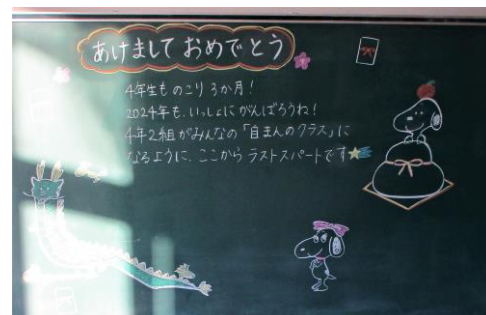 あけましておめでとう
4年生ものこり3か月!
2024年も、いっしょにがんばろうね!
4年2組がみんなの「自まんのクラス」に
なるように、ここからラストスパートです